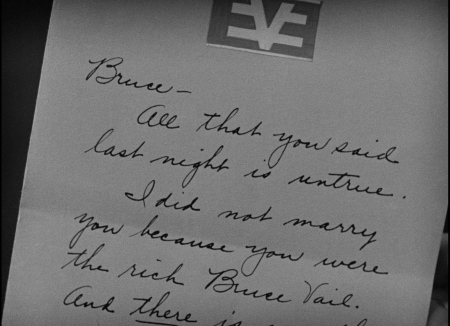 EVE
Bruce—
All that you said
last night is untrue.
I did not marry
you because you were
the rich Bruce Vail.
And there is